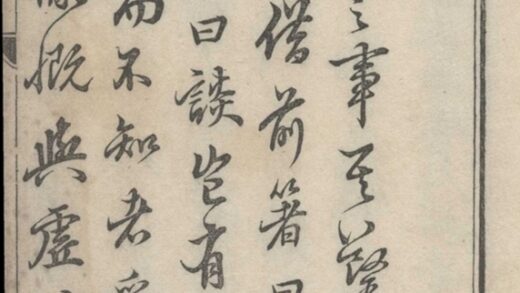 之事其
借前箸
曰談豈有
而不知者
慨與虛